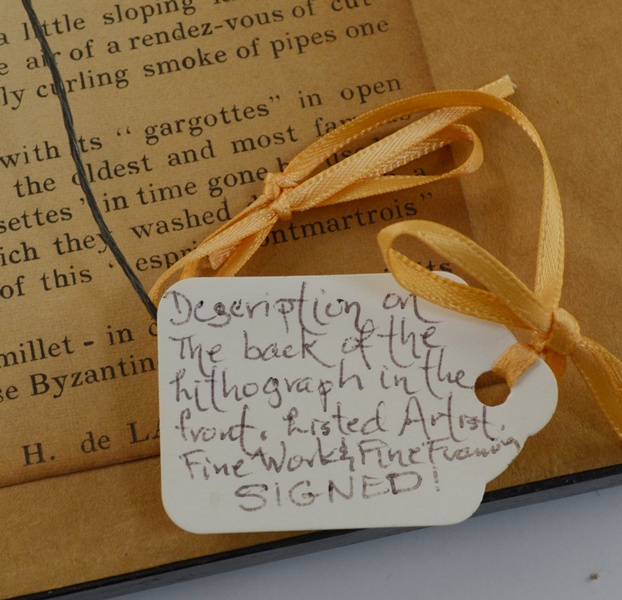 a little sloping
of a rendez-vous of cut
ly curling smoke of pipes one
with its " gargottes" in open
the oldest and most
settes" in time gone
ich they washed a
of this ontmartrois"
millet - in
se Byzantin
H. de
Description on
The back of the
Lithograph in the
front. Listed Artist.
Fine Work & Fine Framing
SIGNED!